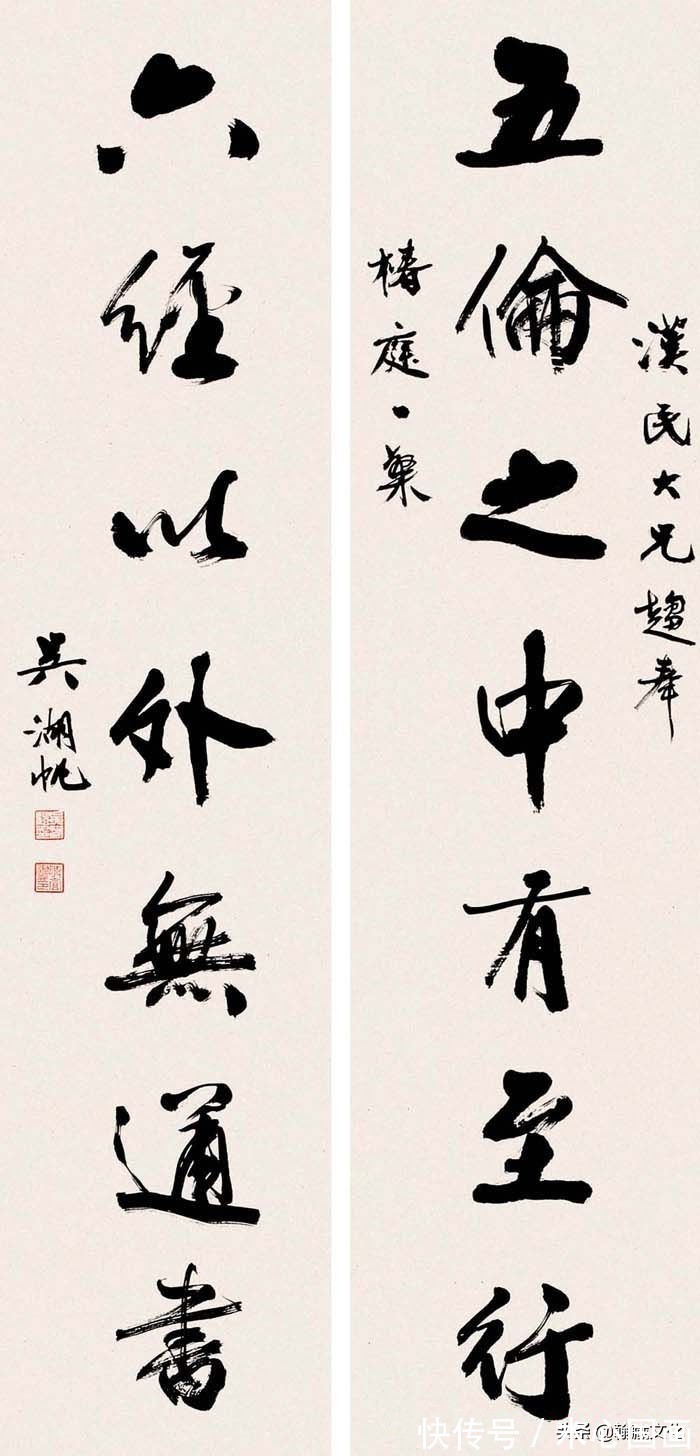 漢民大兄趨奉
五倫之中有至行
椿庭一粲
六經以外無書
吳湖帆
快传号 /